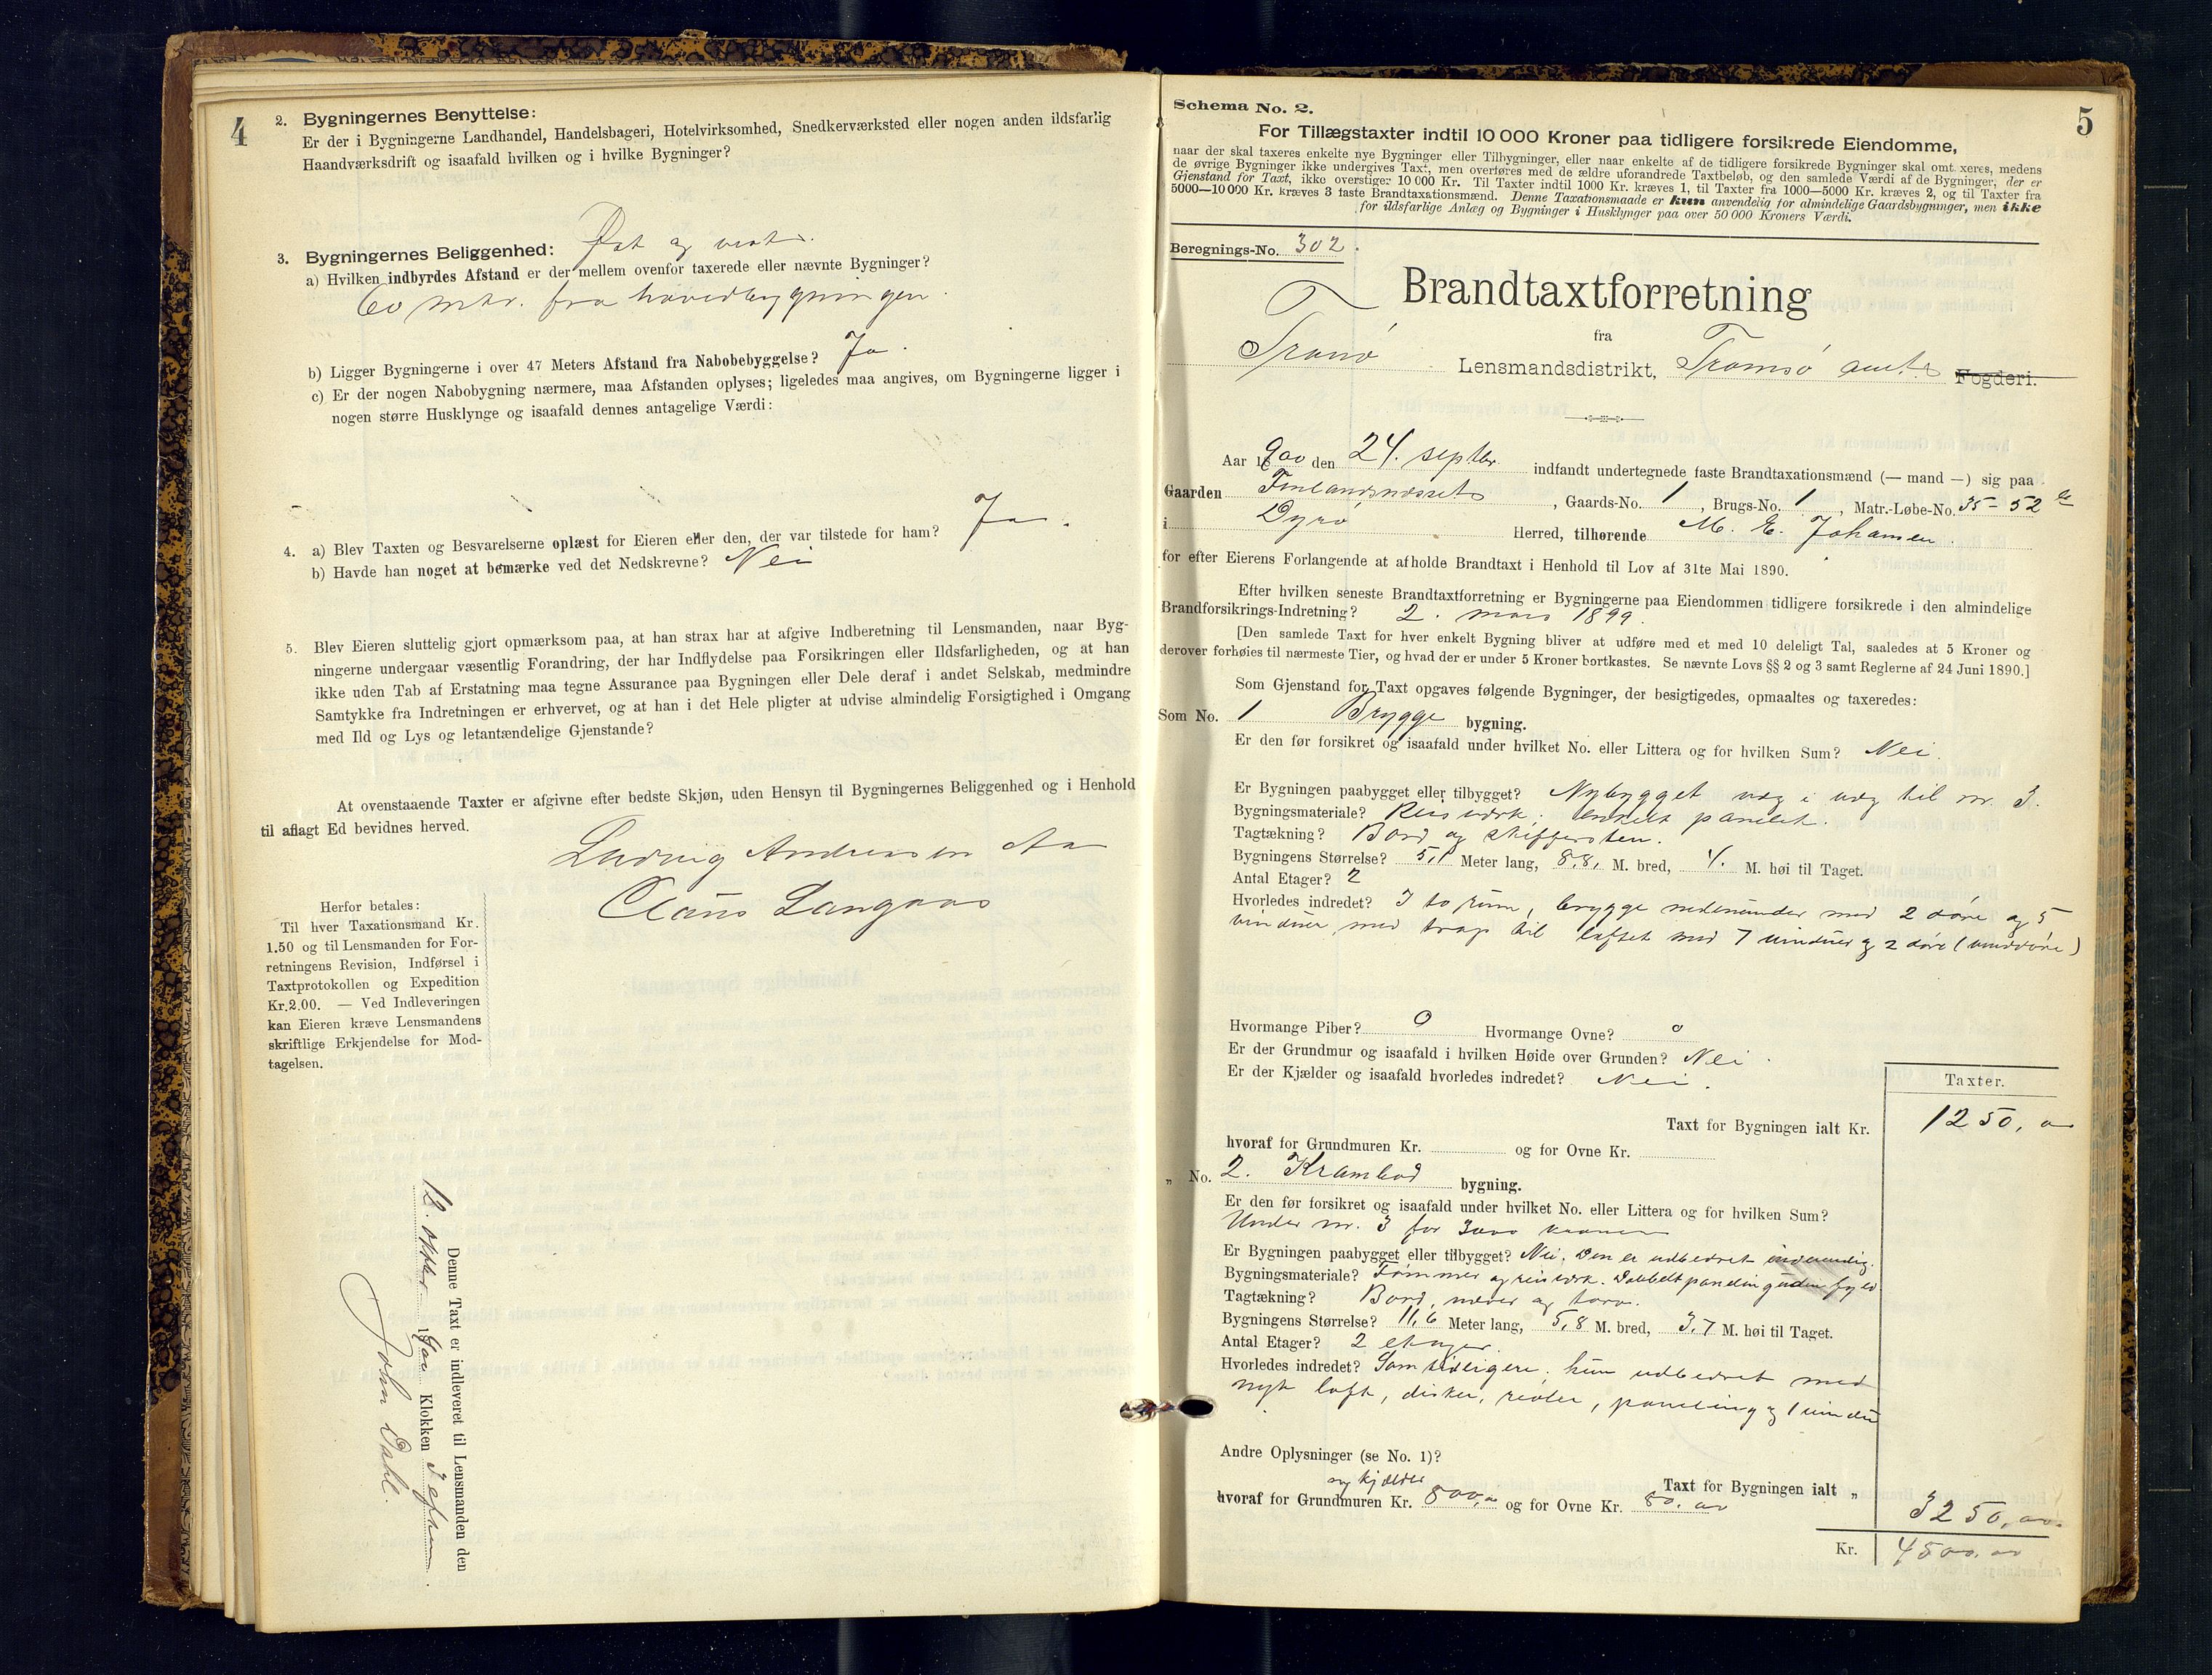 4
2. Bygningernes Benyttelse:
Er der i Bygningerne Landhandel, Handelsbageri, Hotelvirksomhed, Snedkerværksted eller nogen anden ildsfarlig
Haandværksdrift og isaafald hvilken og i hvilke Bygninger?
3. Bygningernes Beliggenhed: Øst og vest.
a) Hvilken indbyrdes Afstand er der mellem ovenfor taxerede eller nævnte Bygninger?
60 mtr. fra hovedbygningen.
b) Ligger Bygningerne i over 47 Meters Afstand fra Nabobebyggelse? Ja.
c) Er der nogen Nabobygning nærmere, maa Afstanden oplyses; ligeledes maa angives, om Bygningerne ligger i
nogen større Husklynge og isaafald dennes antagelige Værdi:
4. a) Blev Taxten og Besvarelserne oplæst for Eieren eller den, der var tilstede for ham? Ja.
b) Havde han noget at bemærke ved det Nedskrevne? Nei
5. Blev Eieren sluttelig gjort opmærksom paa, at han strax har at afgive Indberetning til Lensmanden, naar Byg-
ningerne undergaar væsentlig Forandring, der har Indflydelse paa Forsikringen eller Ildsfarligheden, og at han
ikke uden Tab af Erstatning maa tegne Assurance paa Bygningen eller Dele deraf i andet Selskab, medmindre
Samtykke fra Indretningen er erhvervet, og at han i det Hele pligter at udvise almindelig Forsigtighed i Omgang
med Ild og Lys og letantændelige Gjenstande?
At ovenstaaende Taxter er afgivne efter bedste Skjøn, uden Hensyn til Bygningernes Beliggenhed og i Henhold
til aflagt Ed bevidnes herved.
Ludvig Andreasen Aa
Claus Langaas
Herfor betales:
Til hver Taxationsmand Kr.
1.50 og til Lensmanden for For-
retningens Revision, Indførsel i
Taxtprotokollen og Expedition
Kr.2.00. — Ved Indleveringen
kan Eieren kræve Lensmandens
skriftlige Erkjendelse for Mod-
tagelsen.
Denne Taxt er indleveret til Lensmanden den
12. oktbr 1900 Klokken 3 eftm.
John Dahl.
5
Schema No. 2.
For Tillægstaxter indtil 10 000 Kroner paa tidligere forsikrede Eiendomme,
naar der skal taxeres enkelte nye Bygninger eller Tilbygninger, eller naar enkelte af de tidligere forsikrede Bygninger skal omt xeres, medens
de øvrige Bygninger ikke undergives Taxt, men overføres med de ældre uforandrede Taxtbeløb, og den samlede Værdi af de Bygninger, der er
Gjenstand for Taxt, ikke overstiger 10 000 Kr. Til Taxter indtil 1000 Kr. kræves 1, til Taxter fra 1000—5000 Kr. kræves 2, og til Taxter fra
5000—10 000 Kr. kræves 3 faste Brandtaxationsmænd. Denne Taxationsmaade er kun anvendelig for almindelige Gaardsbygninger, men ikke
for ildsfarlige Anlæg og Bygninger i Husklynger paa over 50 000 Kroners Værdi.
Beregnings-No. 302.
Brandtaxtforretning
fra
Tranø Lensmandsdistrikt, Tromsø amts Fogderi.
Aar 1900 den 24. septbr. indfandt undertegnede faste Brandtaxationsmænd (— mand —) sig paa
Gaarden Finlandsnæsset, Gaards-No. 1, Brugs-No. 1, Matr.-Løbe-No. 35-52
i Dyrø Herred, tilhørende M. E. Johansen
for efter Eierens Forlangende at afholde Brandtaxt i Henhold til Lov af 31te Mai 1890.
Efter hvilken seneste Brandtaxtforretning er Bygningerne paa Eiendommen tidligere forsikrede i den almindelige
Brandforsikrings-Indretning? 2. mars 1899.
[Den samlede Taxt for hver enkelt Bygning bliver at udføre med et med 10 deleligt Tal, saaledes at 5 Kroner og
derover forhøies til nærmeste Tier, og hvad der er under 5 Kroner bortkastes. Se nævnte Lovs §§ 2 og 3 samt Reglerne af 24 Juni 1890.]
Som Gjenstand for Taxt opgaves følgende Bygninger, der besigtigedes, opmaaltes og taxeredes:
Som No. 1 Brygge bygning.
Er den før forsikret og isaafald under hvilket No. eller Littera og for hvilken Sum? Nei.
Er Bygningen paabygget eller tilbygget? Nybygget væg i væg til nr. 3.
Bygningsmateriale? Reisværk, enkelt panelet.
Tagtækning? Bord og skiffersten.
Bygningens Størrelse? 5,1 Meter lang, 8,8, M. bred, 4. M. høi til Taget.
Antal Etager? 2
Hvorledes indredet? I to rum, brygge nedenunder med 2 døre og 5
vinduer med trap til loftet med 7 vinduer og 2 døre (vinddøre)
Hvormange Piber? 0 Hvormange Ovne? 0
Er der Grundmur og isaafald i hvilken Høide over Grunden? Nei.
Er der Kjælder og isaafald hvorledes indredet? Nei.
Taxter.
Taxt for Bygningen ialt Kr. 1250,00
hvoraf for Grundmuren Kr. og for Ovne Kr.
" No. 2. Krambod bygning.
Er den før forsikret og isaafald under hvilket No. eller Littera og for hvilken Sum?
Under nr. 3 for 3000 kroner
Er Bygningen paabygget eller tilbygget? Nei. Den er udbedret indvendig.
Bygningsmateriale? Tømmer og reisværk. Dobbelt paneling uden fyld
Tagtækning? Bord, næver og torv.
Bygningens Størrelse? 11,6 Meter lang, 5,8 M. bred, 3,7 M. høi til Taget.
Antal Etager? 2 etager.
Hvorledes indredet? Som tidligere, kun udbedret med
nyt loft, disker, reoler, paneling og 1 vindu
Andre Oplysninger (se No. 1)?
Taxt for Bygningen ialt " 3250,00.
og kjælder
hvoraf for Grundmuren Kr. 800,00 og for Ovne Kr. 80.00
Kr. 4500.00